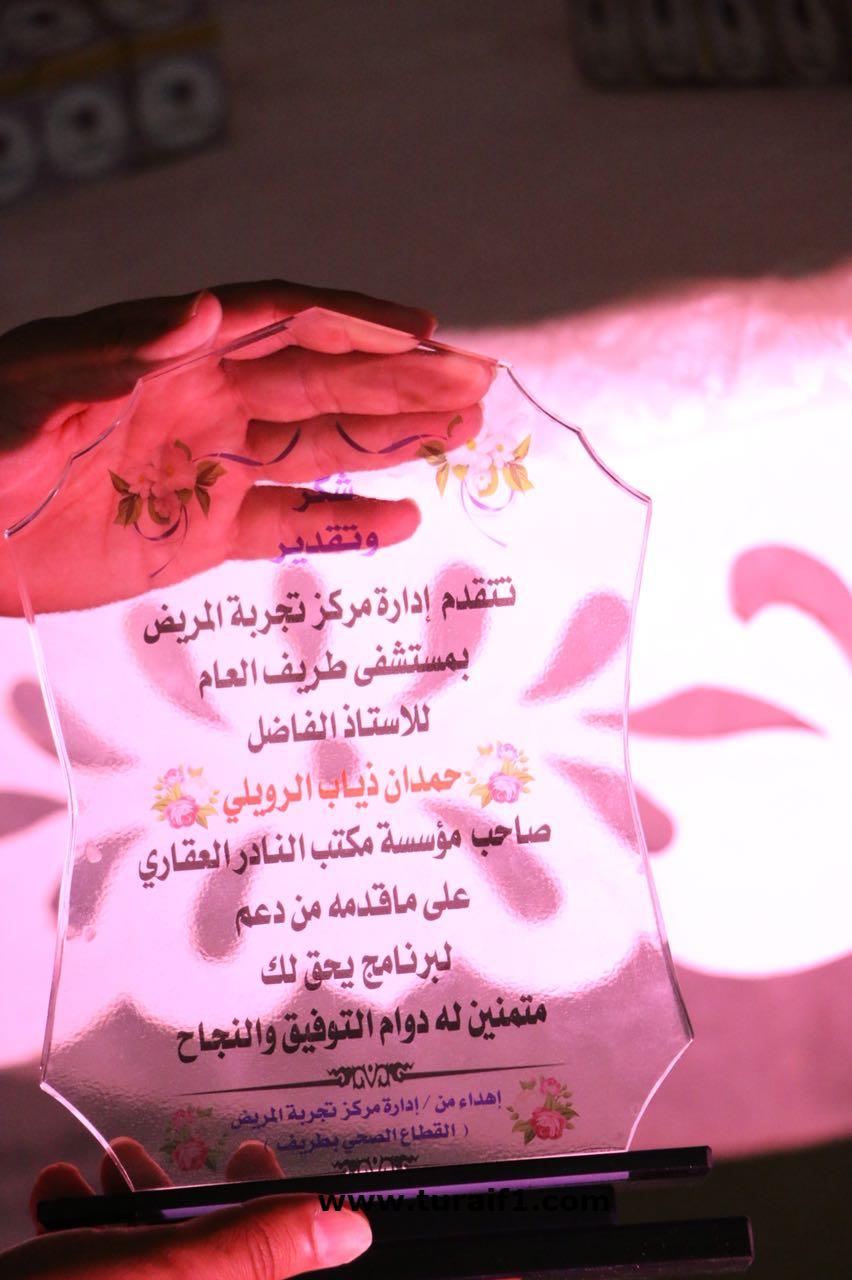 شكر
وتقدير
تتقدم إدارة مركز تجربة المريض
بمستشفى طريف العام
للاستاذ الفاضل
حمدان ذياب الرويلي
صاحب مؤسسة مكتب النادر العقاري
على ماقدمه من دعم
لبرنامج يحق لك
متمنين له دوام التوفيق والنجاح
إهداء من / إدارة مركز تجربة المريض
( القطاع الصحي بطريف )
www.turaif1.com